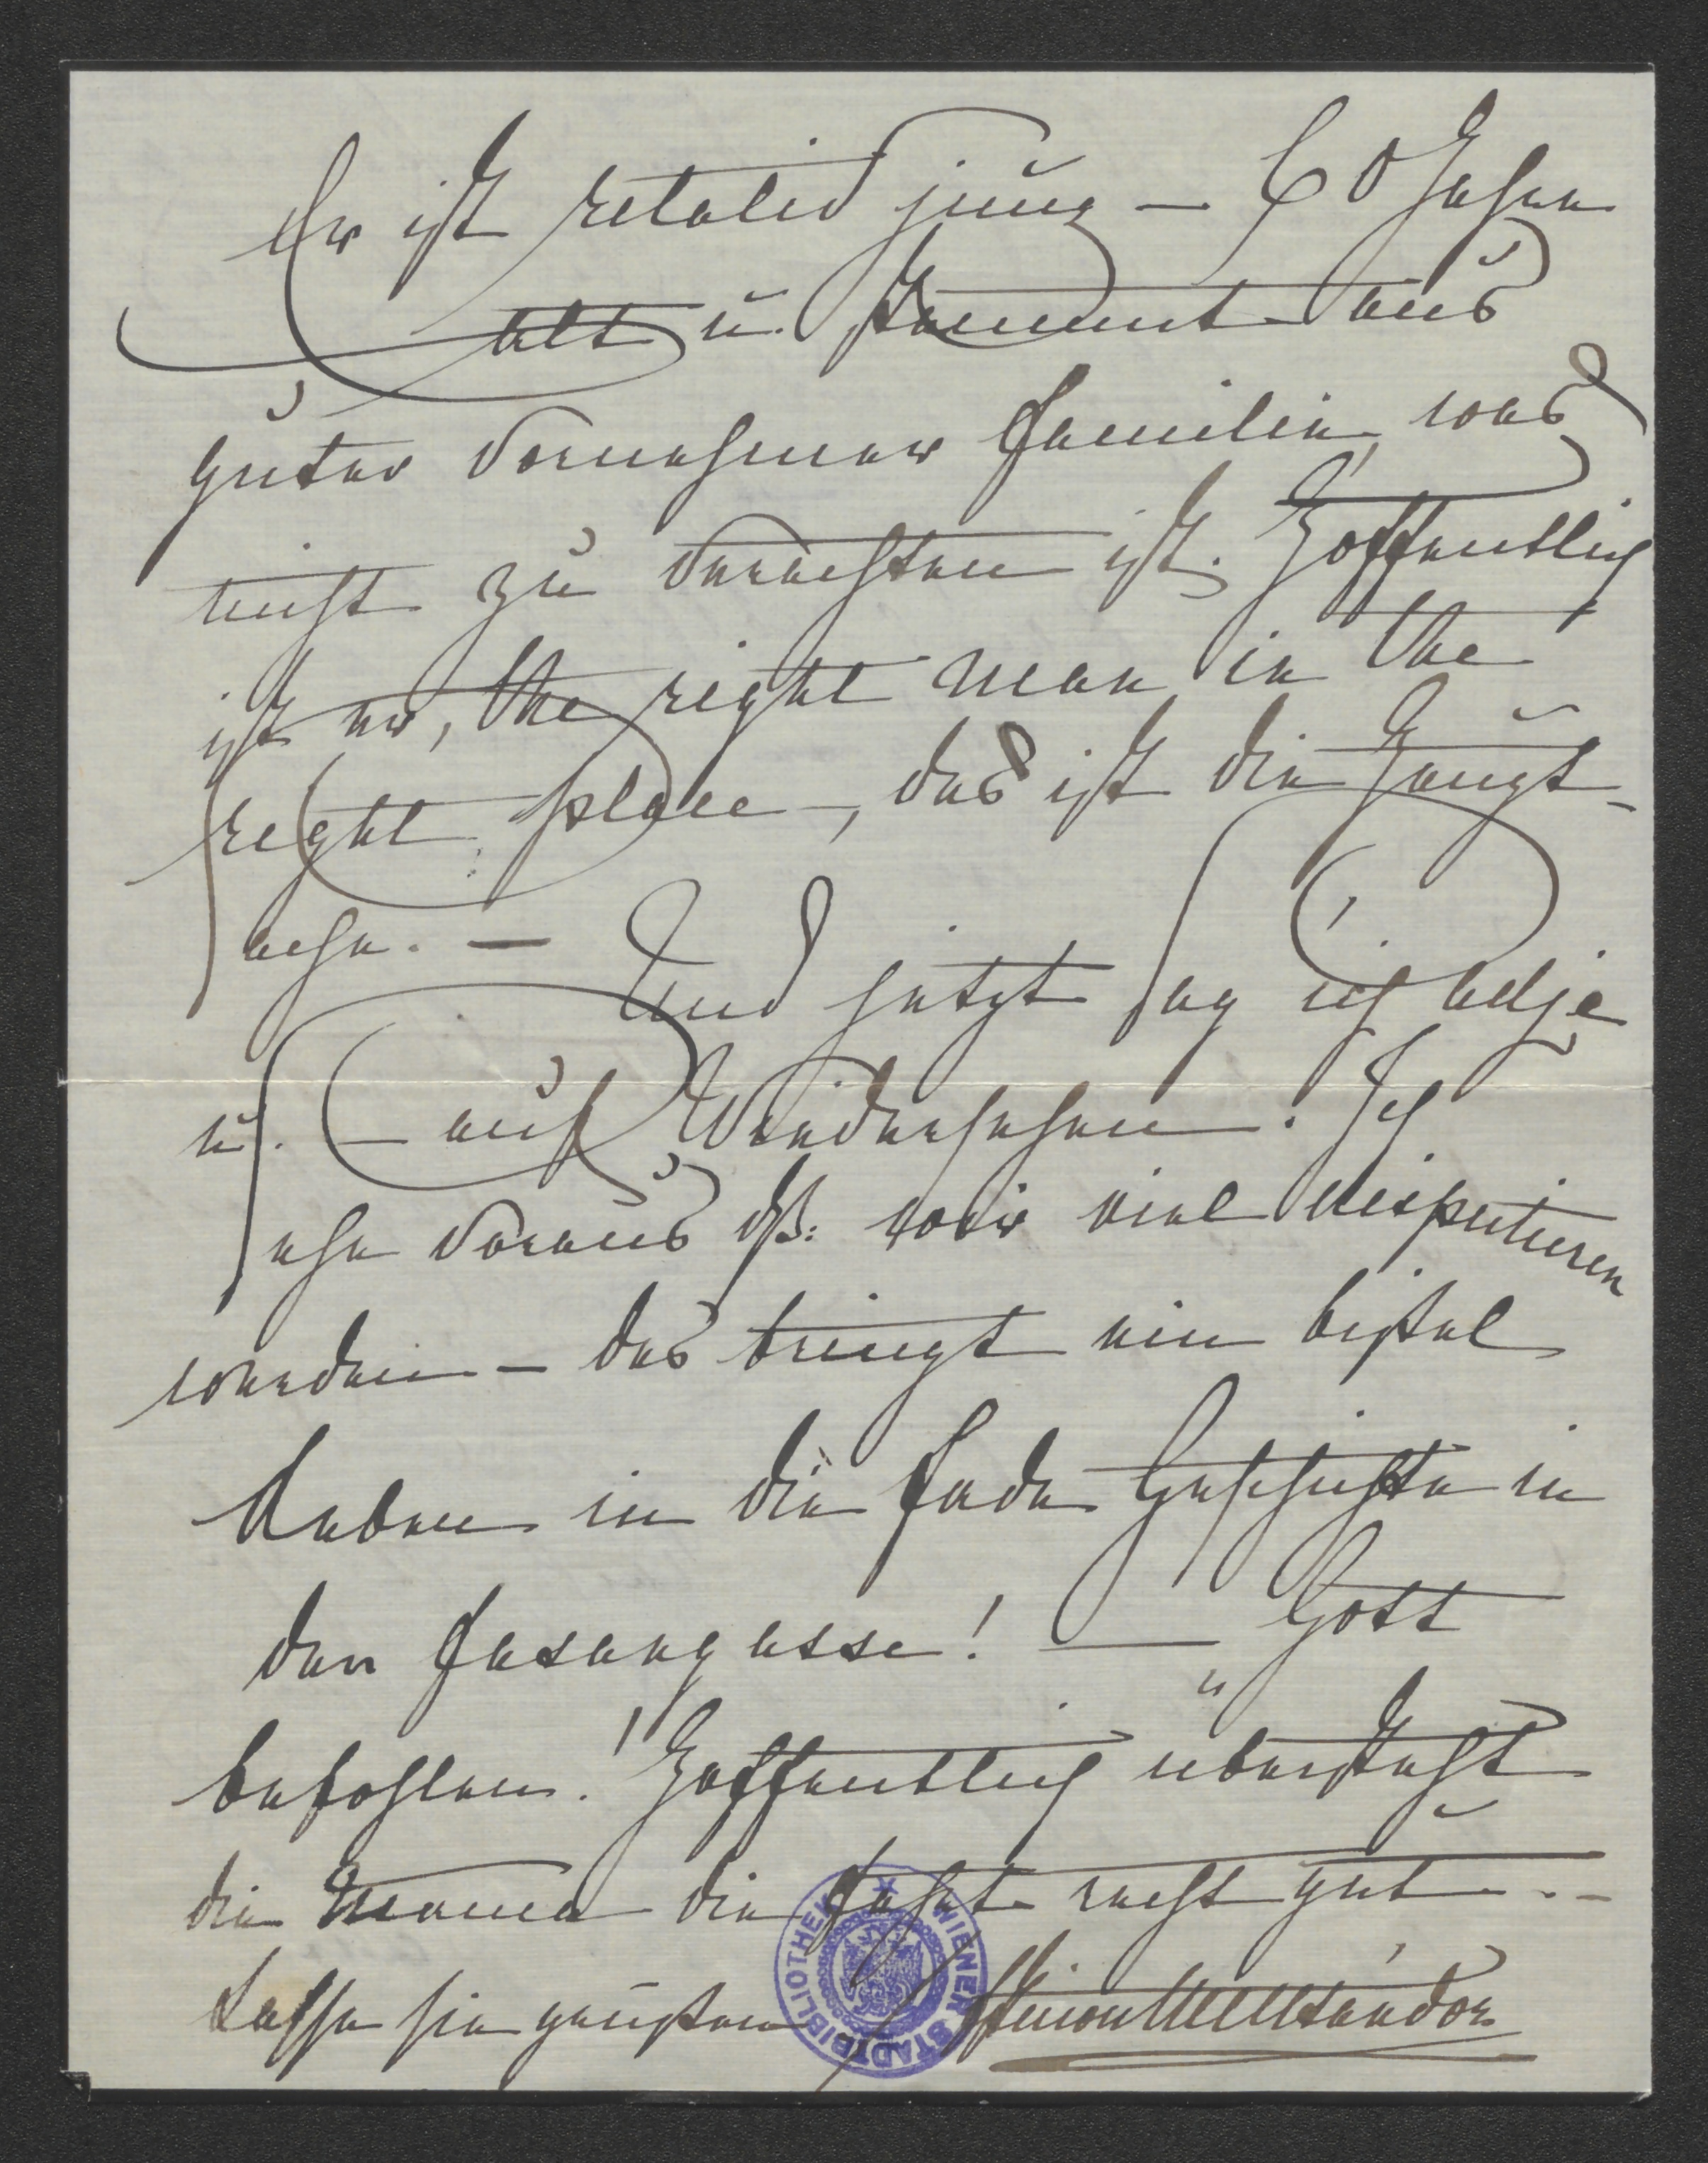 Er ist relativ jung – 60 Jahre
alt u. stammt aus
guter vornehmer Familie, was
nicht zu verachten ist. Hoffentlich
ist er, the right man in the
right place –, das ist die Haupt-
sache. – Und jetzt sag ich adje
u. – auf Wiedersehen. Ich
sehe voraus dß: wir viel disputieren
werden – das bringt ein bißel
Leben in die fade Geschichte in
der Fasangasse! — Gott
befohlen! Hoffentlich übersteht
die Mama die Fahrt recht gut. –
Lasse sie grüßen
WIENER STADTBIBLIOTHEK